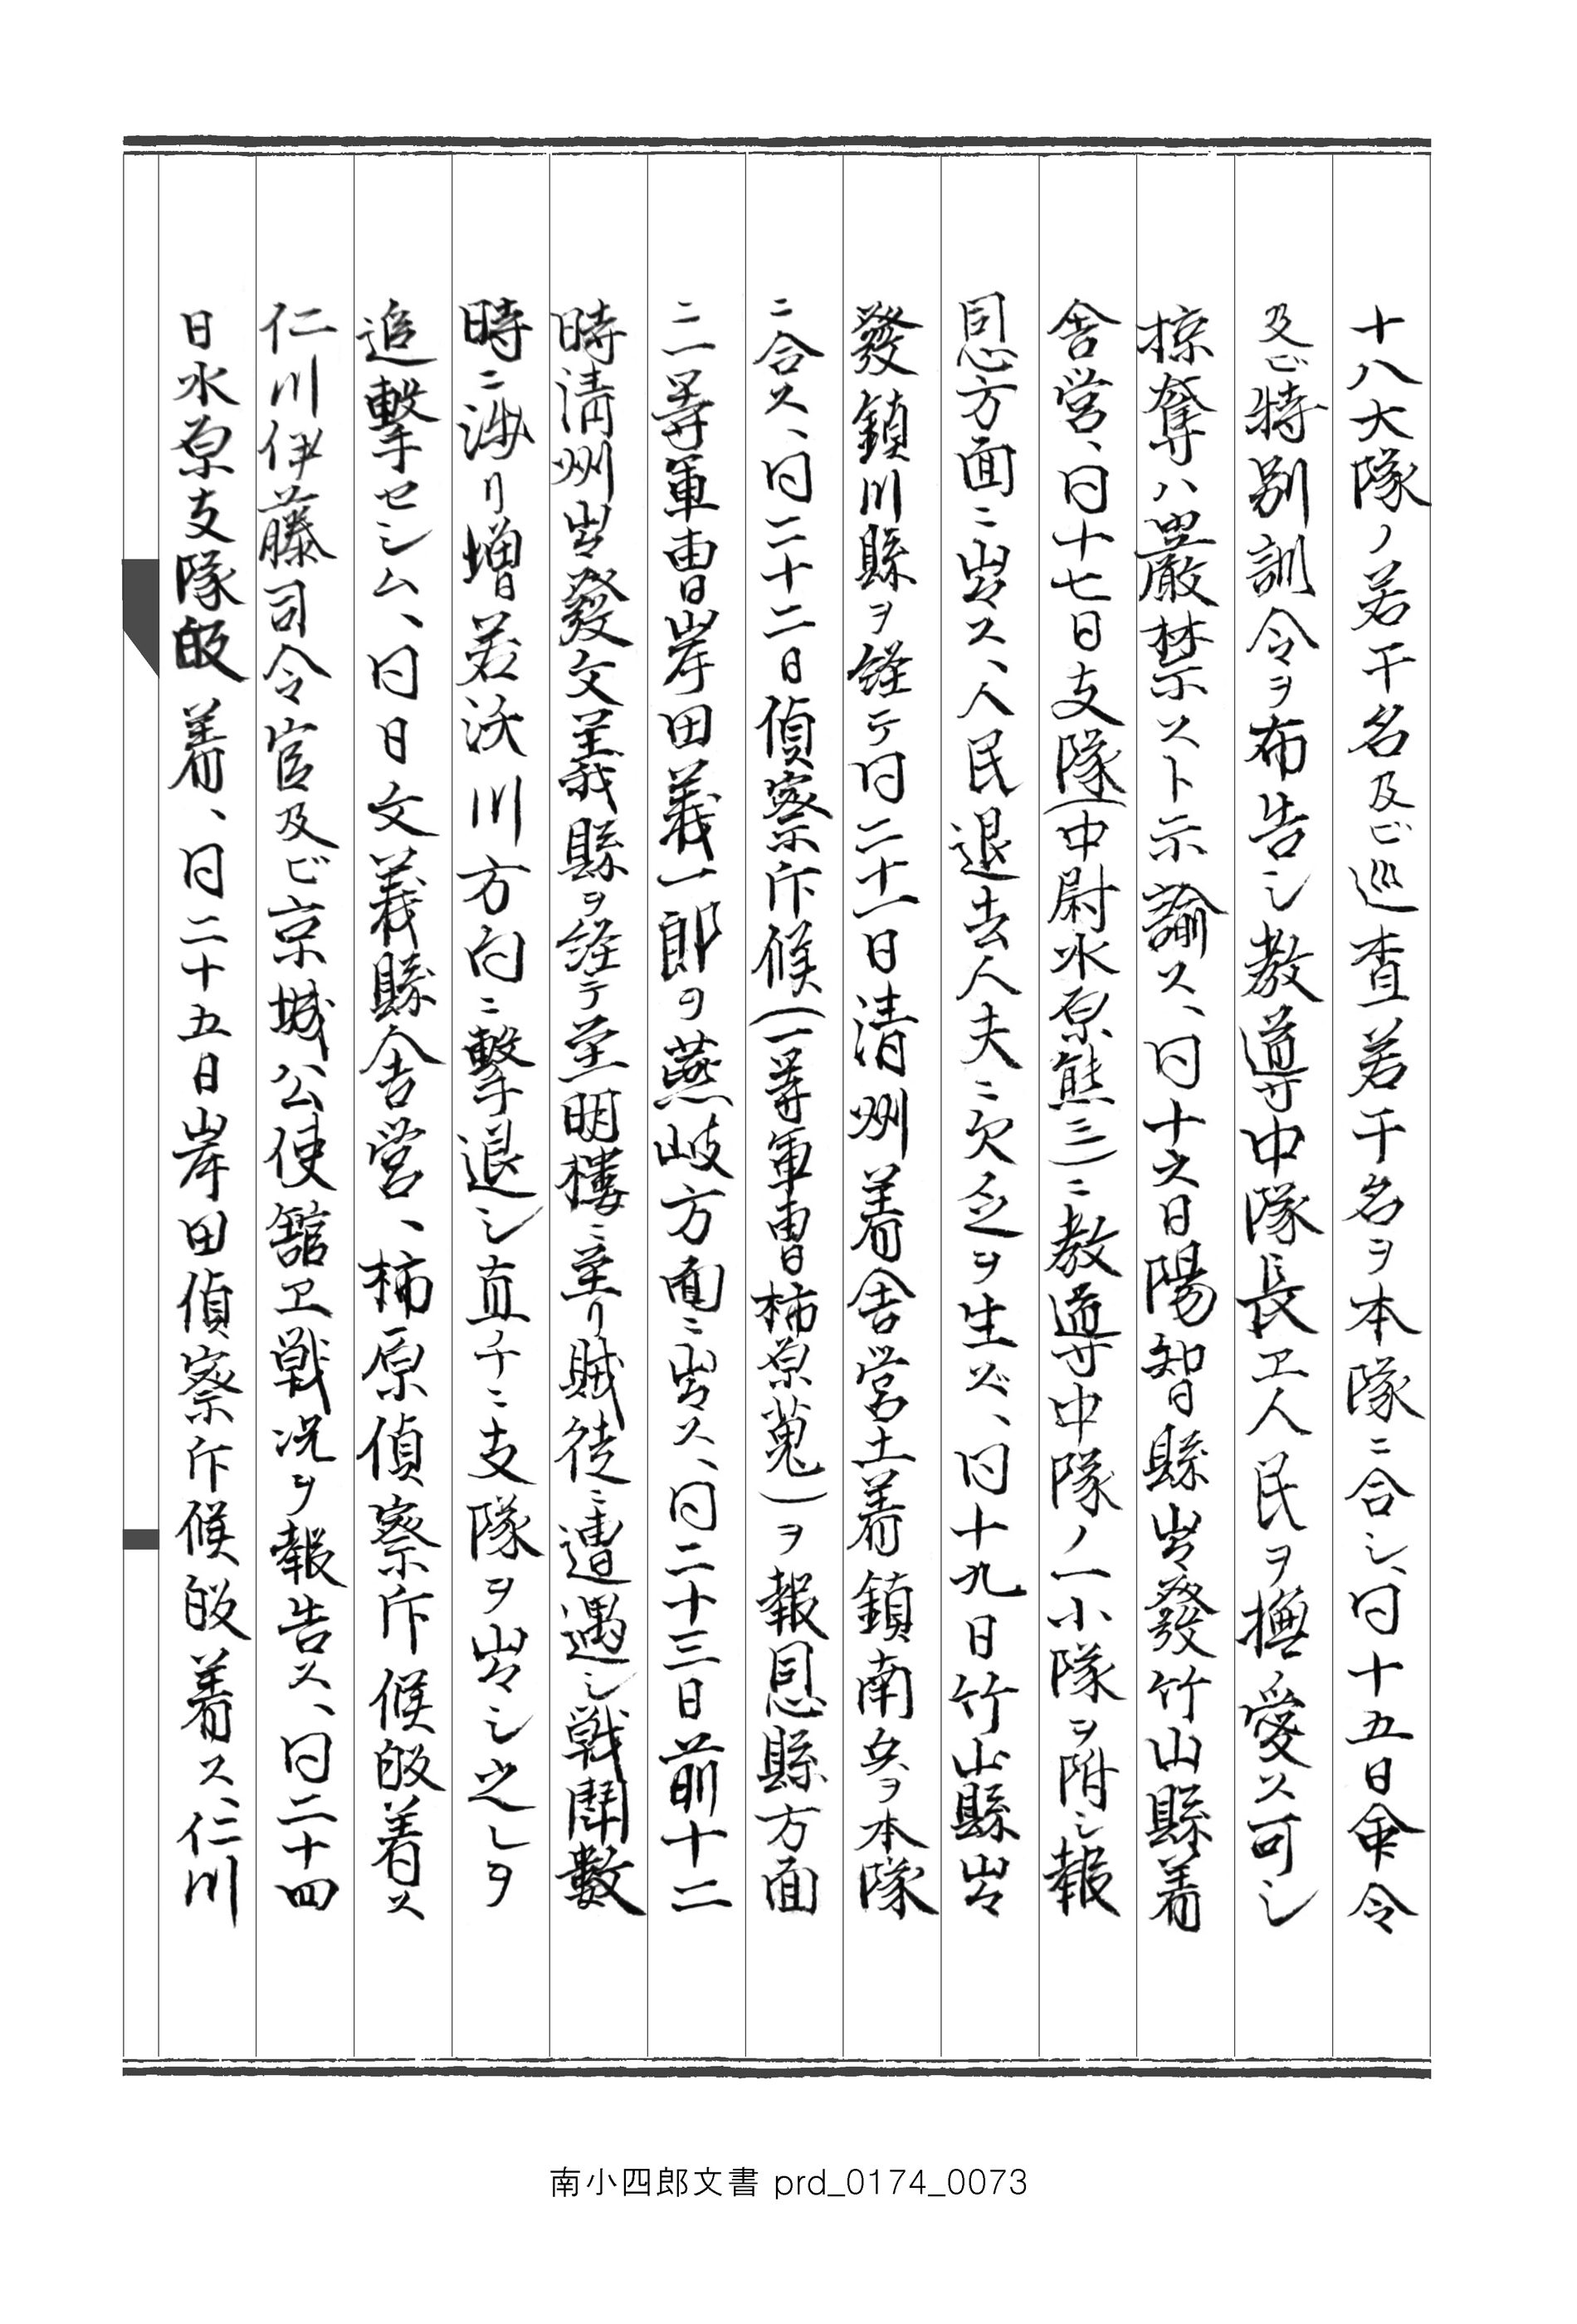 十八大隊ノ若干名及ビ巡査若干名ヲ本隊ニ合シ、同十五日命令
及ビ特別訓令ヲ布告シ教導中隊長エ人民ヲ撫愛ス可シ
掠奪ハ最厳禁スト示諭ス、同十六日陽智縣出發竹山縣着
舎営、同十七日支隊(中尉水原熊三)ニ教導中隊ノ一小隊ヲ附シ報
恩方面ニ出ス、人民退去人夫ニ欠乏ヲ生ズ、同十九日竹山縣出
發鎮川縣ヲ経テ同二十一日清州着舎営土着鎮南兵ヲ本隊
ニ合ス、同二十二日偵察斥候(一等軍曹柿原蒐)ヲ報恩縣方面
ニ一等軍曹岸田義一郎ヲ燕岐方面ニ出ス、同二十三日前十二
時清州出發文義縣ヲ経テ至明樓ニ至リ賊徒ニ遭遇シ戦闘數
時ニ渉リ増若沃川方向ニ擊退シ直チニ支隊ヲ出シ之レヲ
追擊セシム、同日文義縣舎営、柿原偵察斥候皈着ス
仁川伊藤司令官及ビ京城公使舘エ戦況ヲ報告ス、同二十四
日水原支隊皈着、同二十五日岸田偵察斥候皈着ス、仁川
南小四郎文書 prd_0174_0073